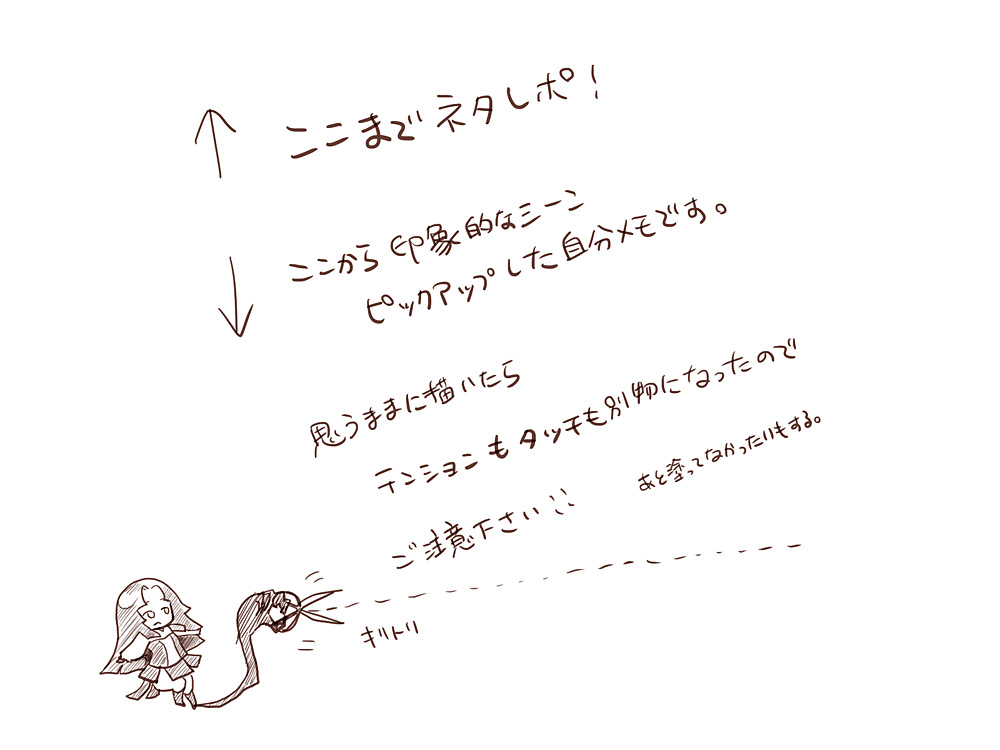 ここまでネタレポ!
ここから印象的なシーン
ピックアップした自分メモです。
思うままに描いたら
テンションもタッチも別物になったので
あと塗ってなかったりもする。
ご注意下さい
キリトリ